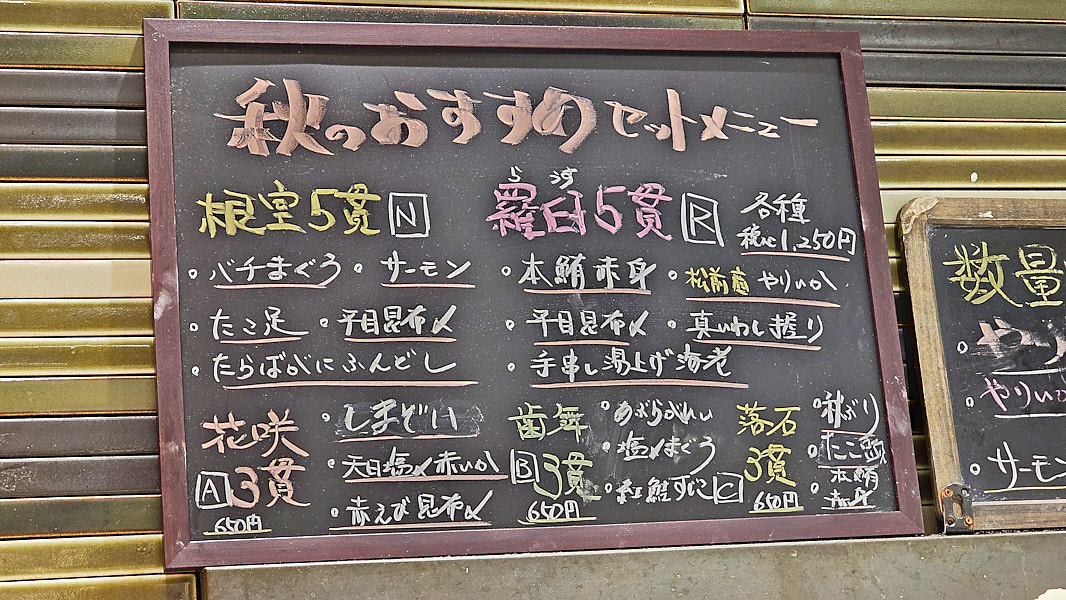 秋のおすすめセットメニュー
根室5貫 N
。バチまぐろ 。サーモン
。たこ足 。平目昆布〆
。たらばがにふんどし
らうす
羅臼5貫 R
各種
税込1,250円
。本鮪赤身 。松前直 やりいか
。平目昆布〆 。真いわし握り
。手串し湯上げ海老
花咲
A 3貫
650円
。しまぞい
。天目塩〆赤いか
。赤えび昆布〆
歯舞
B 3貫
650円
。あぶらがれい
。塩〆まぐろ
。紅鮭すじこ
落石
C 3貫
650円
。秋ぶり
。たこ頭
。本鮪
赤身
数量
。やり
やりいか
。サーモン